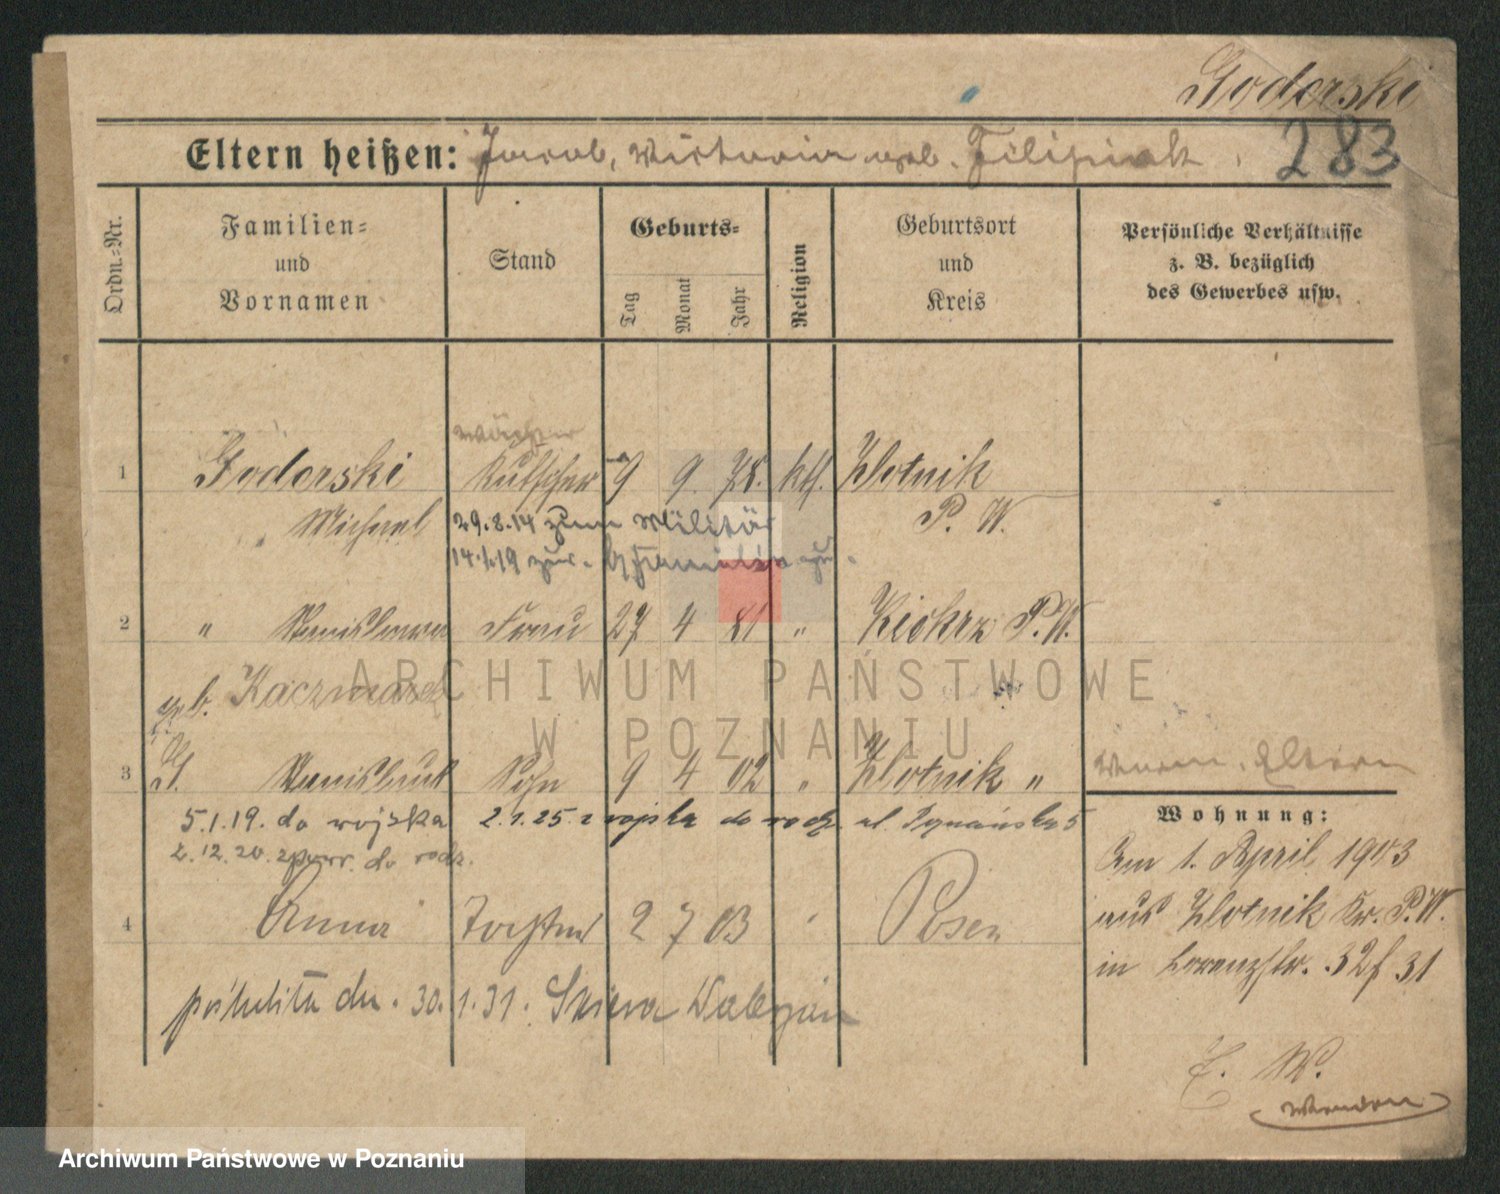 Godorski
283
Eltern heißen: Jacob, Victoria geb. Filipiak.
Ordn.-Nr.
Familien- und Vornamen
Stand
Geburts-
Tag
Monat
Jahr
Religion
Geburtsort und Kreis
Persönliche Verhältnisse z. B. bezüglich des Gewerbes usw.
Wächter
1 Godorski Kutscher 9 9. 78. kth. Zlotnik
Michael 29.8.14 zum Militär P. W.
14.1.19 zur. v. Militär
2 " Stanislawa Frau 27 4 81 " Kiekrz P. W.
geb. Kaczmarek
3 Stanislaus Sohn 9 4 02 " Zlotnik "
5.1.19. do wojska 2.1.25. z wojska do rodz. ul.
2.12.20. do rodz.
4 Anna Tochter 2 7 03 Posen
30.1.31. Walerjan
Eltern
Wohnung:
Am 1. April 1903
aus Zlotnik Kr. P. W.
in Lorenzstr. 32 f 31
E. W.
ARCHIWUM PAŃSTWOWE
W POZNANIU
Archiwum Państwowe w Poznaniu